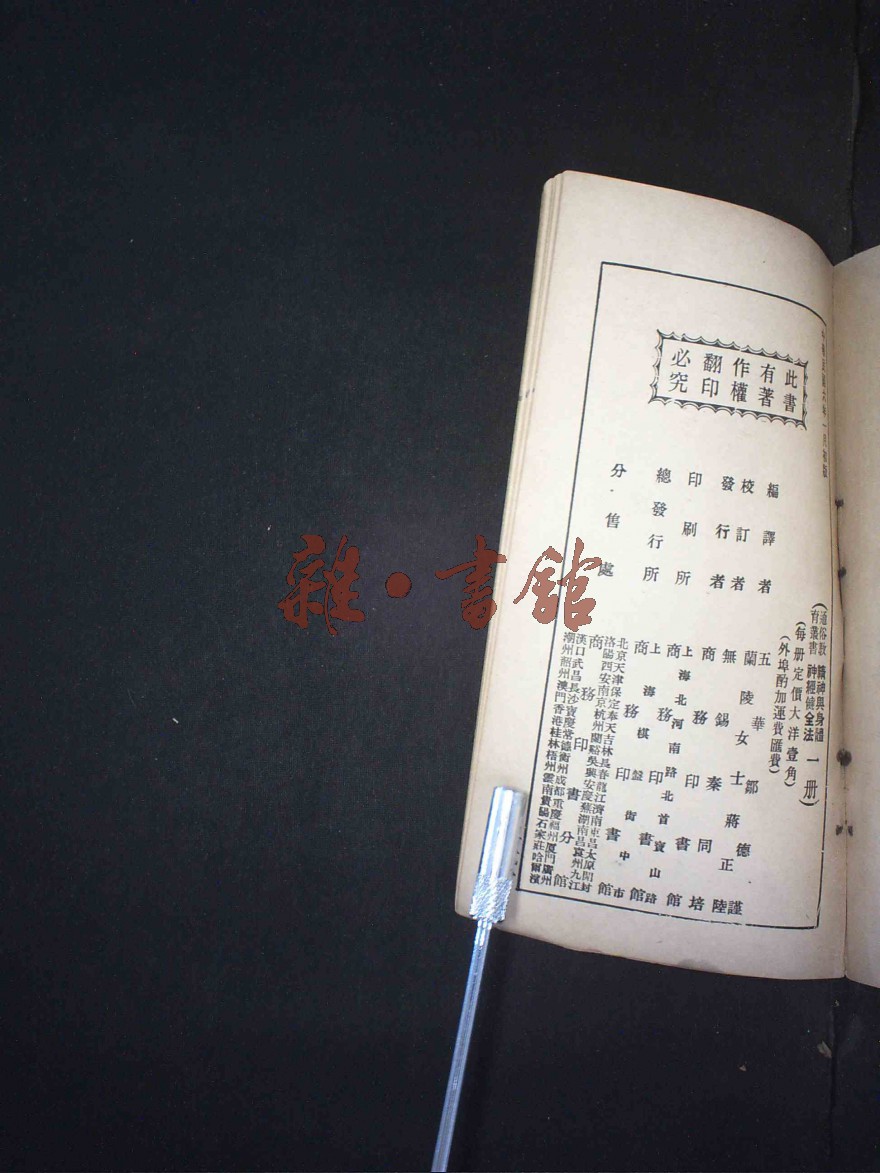 此書
有著
作權
翻印
必究
(通俗教育叢書 精神與身體神經健全法 一册)
(每册定價大洋壹角)
(外埠酌加運費匯費)
編譯者 五華鄒德謹
蘭陵女士蔣正陸
校訂者 無錫秦同培
發行者 商務印書館
印刷所 上海北河南路北首寶山路
商務印書館
總發行所 上海棋盤街中市
商務印書館
分售處 北京天津保定奉天吉林長春龍江濟南東昌太原開封
洛陽西安南京杭州蘭谿吳興安慶蕪湖南昌袁州九江
商務印書分館
漢口武昌長沙寶慶常德衡州成都重慶福州厦門廣州
潮州韶州澳門香港桂林梧州雲南貴陽石家莊哈爾濱
雜·書館